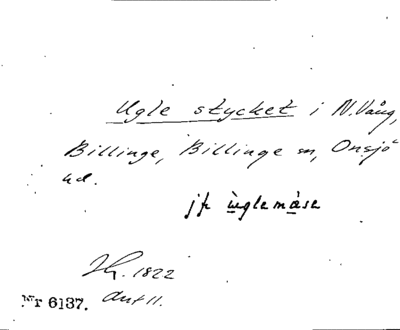 Ugle stycket i N. Vång,
Billinge, Billinge sn, Onsjö
hd.
jfr ùglemåse
1822
Nr 6137. Avt 11.